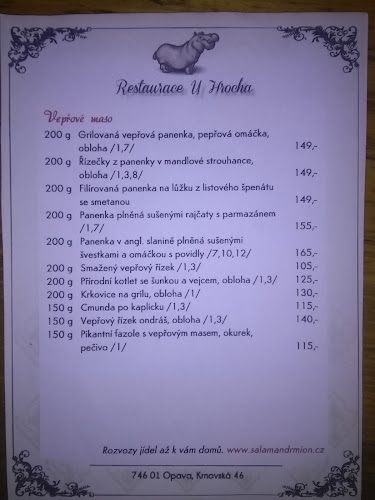 Restaurace U Hrocha
Vepřové maso
200 g Grilovaná vepřová panenka, pepřová omáčka,
obloha /1,7/ 149,-
200 g Řízečky z panenky v mandlové strouhance,
obloha /1,3,8/ 149,-
200 g Filírovaná panenka na lůžku z listového špenátu
se smetanou 149,-
200 g Panenka plněná sušenými rajčaty s parmazánem
/1,7/ 155,-
200 g Panenka v angl. slanině plněná sušenými
švestkami a omáčkou s povidly /7,10,12/ 165,-
200 g Smažený vepřový řízek /1,3/ 105,-
200 g Přírodní kotlet se šunkou a vejcem, obloha /1,3/ 125,-
200 g Krkovice na grilu, obloha /1/ 130,-
150 g Cmunda po kaplicku /1,3/ 115,-
150 g Vepřový řízek ondráš, obloha /1,3/ 140,-
150 g Pikantní fazole s vepřovým masem, okurek,
pečivo /1/ 115,-
Rozvozy jídel až k vám domů. www.salamandrmion.cz
746 01 Opava, Krnovská 46